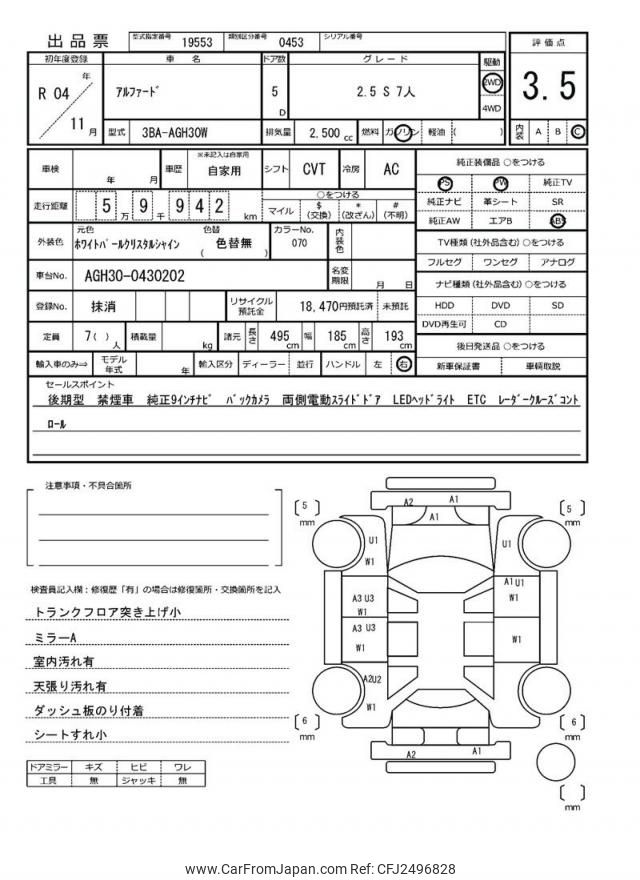 出品票
型式指定番号 19553 類別区分番号 0453 シリアル番号
初年度登録 車名 ドア数 グレード 駆動 評価点
R 04 年 11 月
アルファード 5 D 2.5 S 7人 2WD 4WD 3.5
型式 3BA-AGH30W 排気量 2,500 cc 燃料 ガソリン 軽油 ( ) 内装 A B C
車検 年 月 車歴 ※未記入は自家用 自家用 シフト CVT 冷房 AC
走行距離 5 万 9 千 9 4 2 km ○をつける
マイル $ (交換) * (改ざん) # (不明)
外装色 元色 ホワイトパールクリスタルシャイン 色替 ( 色替無 ) カラーNo. 070 内装色
車台No. AGH30-0430202 名変期限 月 日
登録No. 抹消 リサイクル預託金 18,470円預託済 未預託
定員 7( )人 積載量 kg 諸元 長さ 495 cm 幅 185 cm 高さ 193 cm
輸入車のみ⇒ モデル年式 年 輸入区分 ディーラー 並行 ハンドル 左 右
純正装備品 ○をつける
PS PW 純正TV
純正ナビ 革シート SR
純正AW エアB ABS
TV種類 (社外品含む) ○をつける
フルセグ ワンセグ アナログ
ナビ種類 (社外品含む) ○をつける
HDD DVD SD
DVD再生可 CD
後日発送品 ○をつける
新車保証書 車輌取説
セールスポイント
後期型 禁煙車 純正9インチナビ バックカメラ 両側電動スライドドア LEDヘッドライト ETC レーダークルーズコント
ロール
注意事項・不具合箇所
検査員記入欄：修復歴「有」の場合は修復箇所・交換箇所を記入
トランクフロア突き上げ小
ミラーA
室内汚れ有
天張り汚れ有
ダッシュ板のり付着
シートすれ小
ドアミラー キズ ヒビ ワレ
工具 無 ジャッキ 無
A2 A1
A1
5 mm
5 mm
U1
W1
U1
A1 U1
W1
A3 U3
W1
A3 U3
W1
W1
A2U2
W1
6 mm
6 mm
A2 A1
mm
www.CarFromJapan.com Ref: CFJ2496828